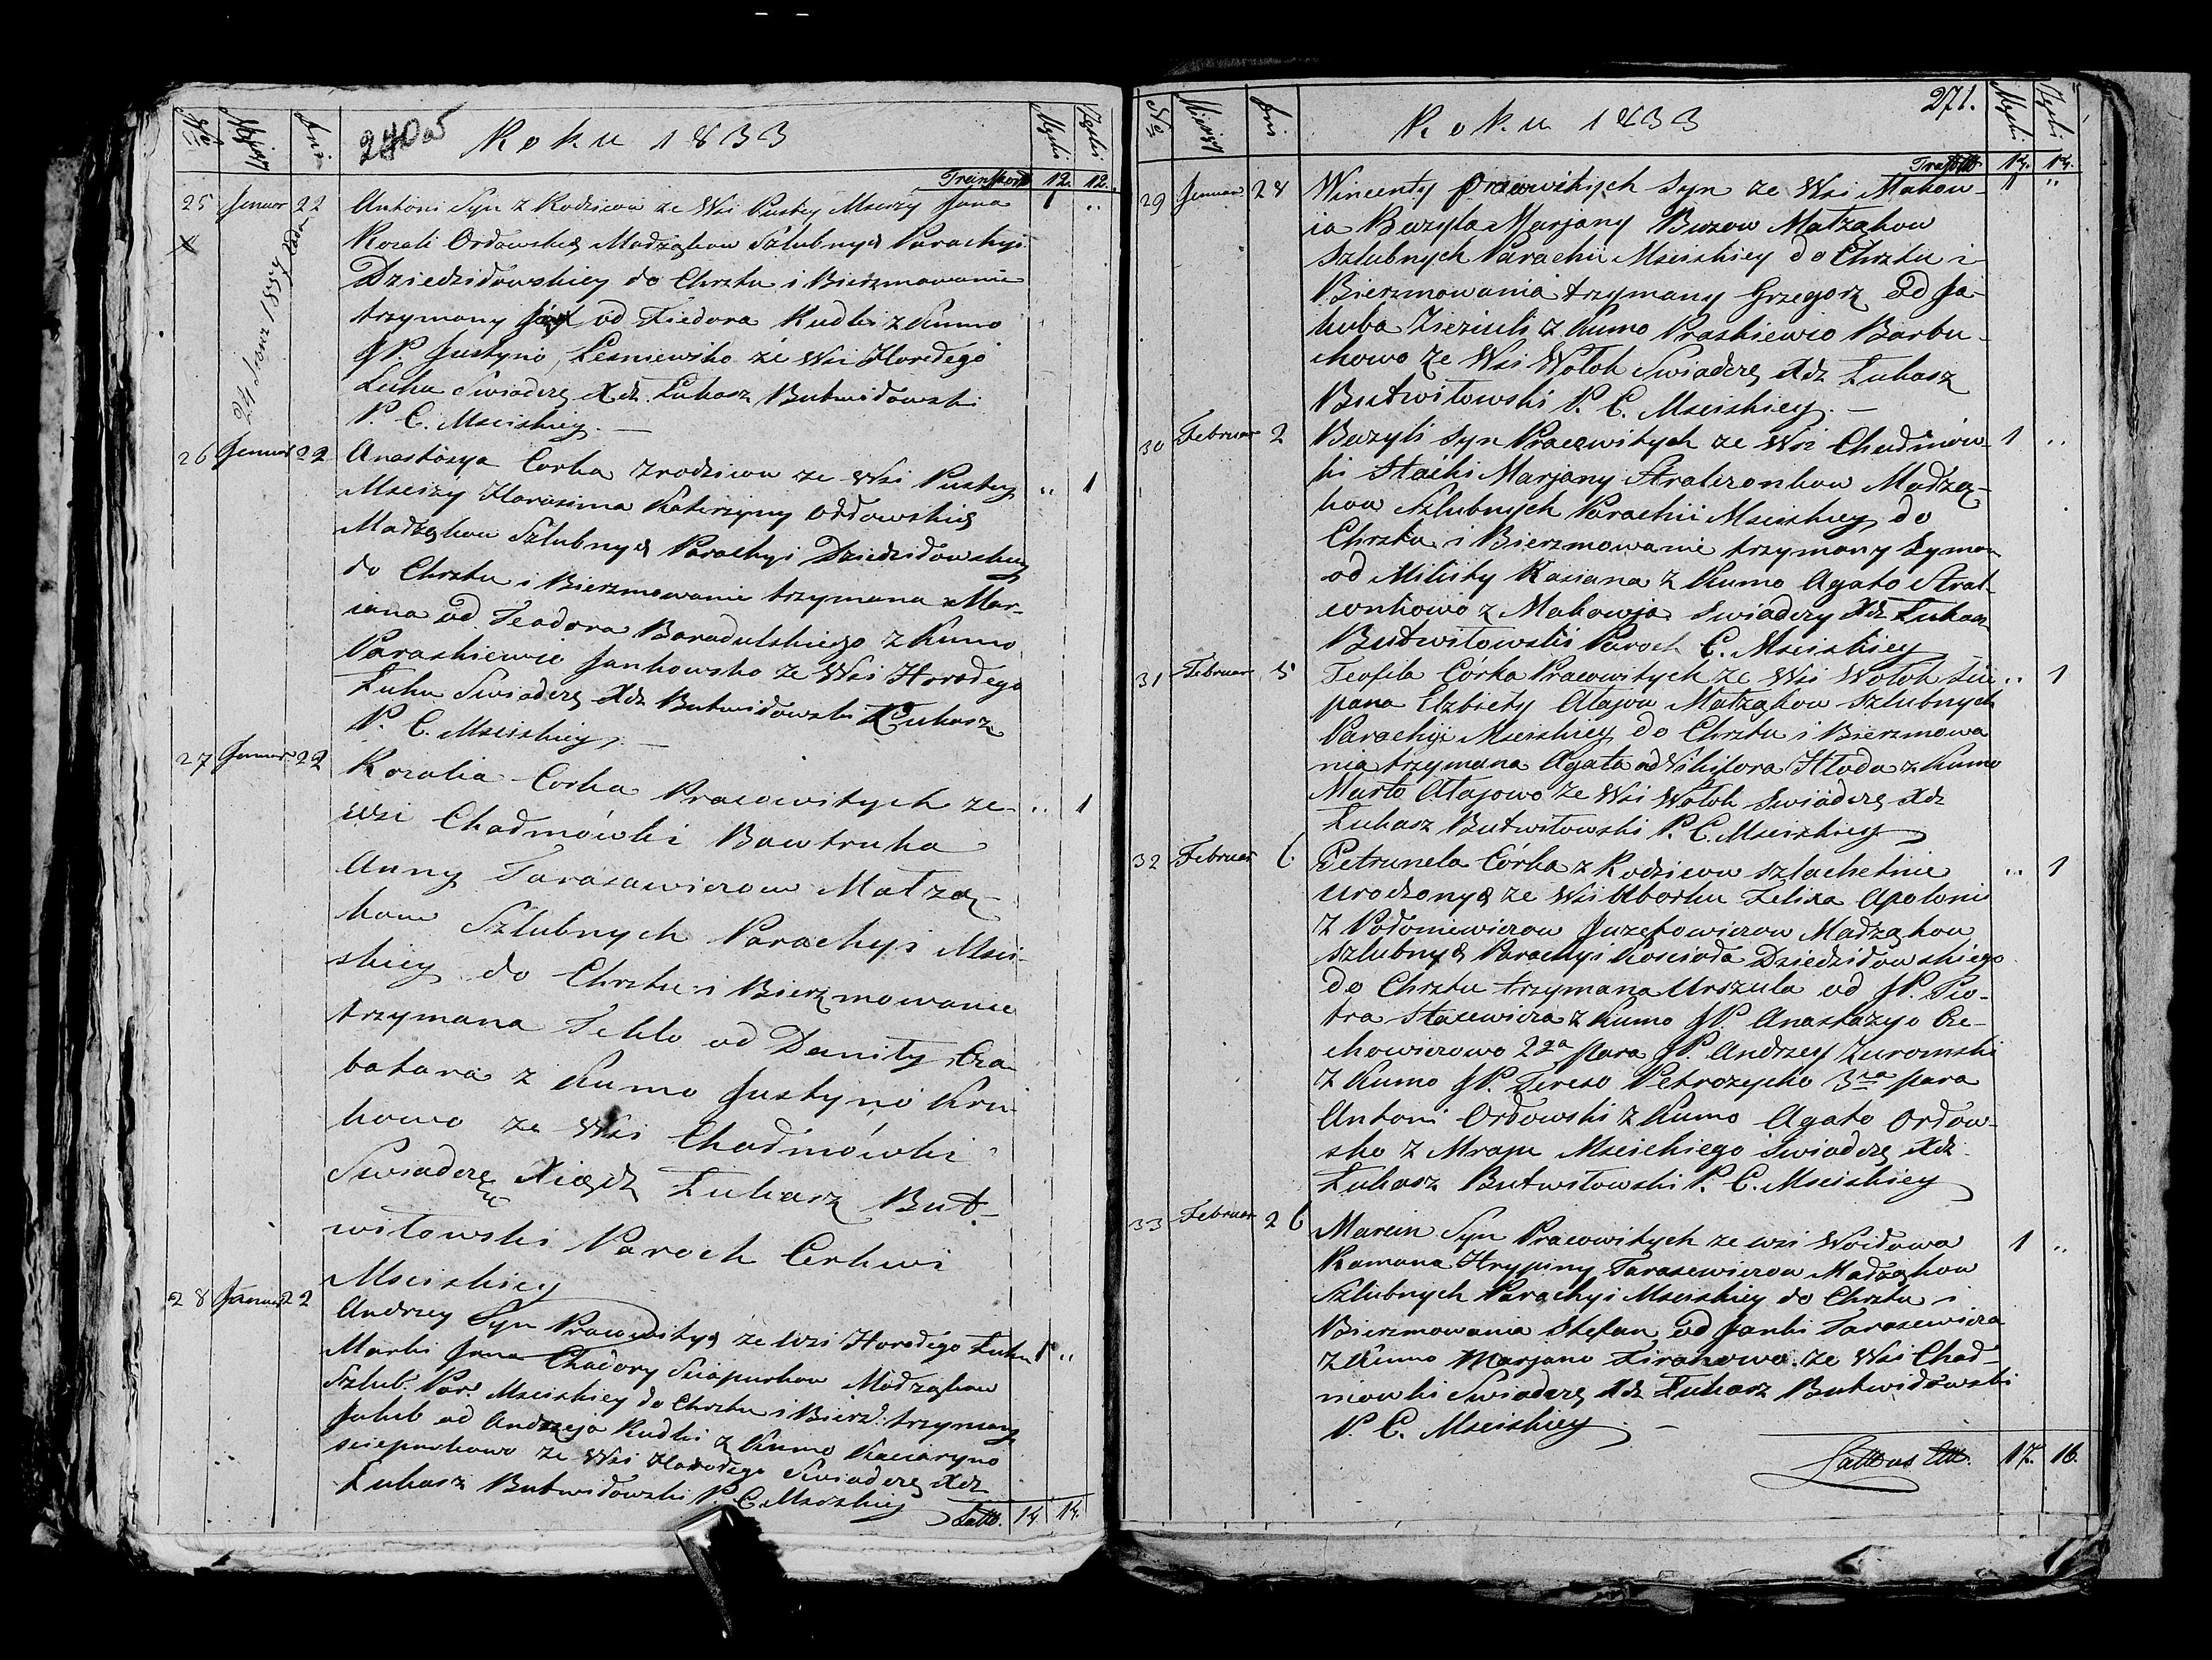 No Miesiąc dni 270 Roku 1833 Męski Żeński
Transport 12. 12.
25 Januar 22 Antoni Syn z Rodziców ze Wsi Pustey Mseizy Jana 1 ..
Rozali Ordowskich Madząkow Szlubnych Parachyi
Dziedzidowskiey do Chrztu i Bierzmowanie
trzymany Józef od Fiedora Rudki z Kumo
JP. Justyno Lesniewsko ze Wsi Horodego
Luhu Swiadczę Xdz Łukasz Butwidowski
P. C. Mseiskiey. —
26 Januar 22 Anastasya Corka z rodzicow ze Wsi Pustey
Mseizy Harasima Katerzyny Ordowskich .. 1
Madząkow Szlubnych Parachyi Dziedzidowskiey
do Chrztu i Bierzmowanie trzymana Mar-
iana od Teodora Baradulskiego z Kumo
Paraskiewio Jankowsko ze Wsi Horodego
Łuhu Swiadczę Xdz Butwidowski Łukasz
P. C. Mseiskiey. —
27 Januar 22 Rozalia Corka Pracowitych ze .. 1
wsi Chadmówki Bawtruka
Anny Tarasawiczow Małzą-
kow Szlubnych Parachyi Msei-
skiey do Chrztu i Bierzmowanie
trzymana Teklo od Daniły Cza-
batara z Kumo Justyno Kru-
kowo ze Wsi Chadmówki
Swiadczę Xiądz Łukasz But-
wiłowski Paroch Cerkwi
Mseiskiey
28 Januar 22 Andrzey Syn Pracowitych ze wsi Horodego Łuhu 1 ..
Marki Jana Chadory Sciapurkow Madząkow
Szlub. Par. Mseiskiey do Chrztu i Bierz. trzymany
Jakub od Andrzeja Rudki z Kumo Kaciaryno
Sciepurkowo ze Wsi Horodego Swiadczę Xdz
Łukasz Butwidowski P. C. Mseiskiey
Latt. 14. 14.
No Miesiąc dni. Roku 1833 271. Męski Żeński
Transport 14. 14.
29 Januar 28 Wincenty Pracowitych Syn ze Wsi Makow- 1 ..
ia Bazyla Marjany Buzow Małząkow
Szlubnych Parachii Mseiskiey do Chrztu i
Bierzmowania trzymany Grzegorz od Ja-
kuba Zieziuli z Kumo Praskiewio Barbu-
chowo ze Wsi Wołok Swiadczę Xdz Łukasz
Butwiłowski P. C. Mseiskiey. —
30 Februar 2 Bazyli Syn Pracowitych ze Wsi Chadmow- 1 ..
ki Staśki Marjany Stralczonkow Madzą-
kow Szlubnych Parachii Mseiskiey do
Chrztu i Bierzmowanie trzymany Symon
od Mikity Kasiana z Kumo Agato Stral-
conkowo z Makowja Swiadczy Xdz Łukasz
Butwiłowski Paroch C. Mseiskiey
31 Februar 5 Teofila Córka Pracowitych ze Wsi Wołok Scie- .. 1
pana Elzbiety Ałajow Małząkow Szlubnych
Parachyi Mseiskiey do Chrztu i Bierzmowa
nia trzymana Agata od Nikifora Hłoda z Kumo
Marto Ałajowo ze Wsi Wołok Swiadczę Xdz
Łukasz Butwiłowski P. C. Mseiskiey
32 Februar 6 Petrunela Córka z Rodzicow szlachetnie .. 1
urodzonych ze Wsi Uborku Felixa Apolonii
z Podoniewiczow Juzefowiczow Madząkow
szlubnych Parachyi Koscioda Dziedzidowskiego
do Chrztu trzymana Urszula od JP. Pio-
tra Stasewicza z Kumo JP. Anastazyo Cze-
chowiczowo 2ga para JP. Andrzey Zuromski
z Kumo JP. Tereso Petrozycko 3cia para
Antoni Ordowski z Kumo Agato Ordow-
sko z Mraju Mseiskiego Swiadczę Xdz
Łukasz Butwiłowski P. C. Mseiskiey
33 Februar 26 Marcin Syn Pracowitych ze wsi Woidowa 1 ..
Ramana Hrypiny Tarasewiczow Madząkow
Szlubnych Parachyi Mseiskiey do Chrztu i
Bierzmowania Stefan od Janki Tarasewicza
z Kumo Marjano Zirakowo ze Wsi Chad-
mowki Swiadczę Xdz Łukasz Butwidowski
P. C. Mseiskiey. —
Lattus 17. 16.